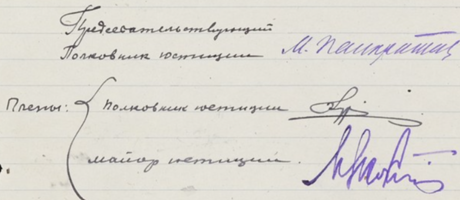 Председательствующий
Полковник юстиции М. Панкратов
Члены: Полковник юстиции
майор юстиции.